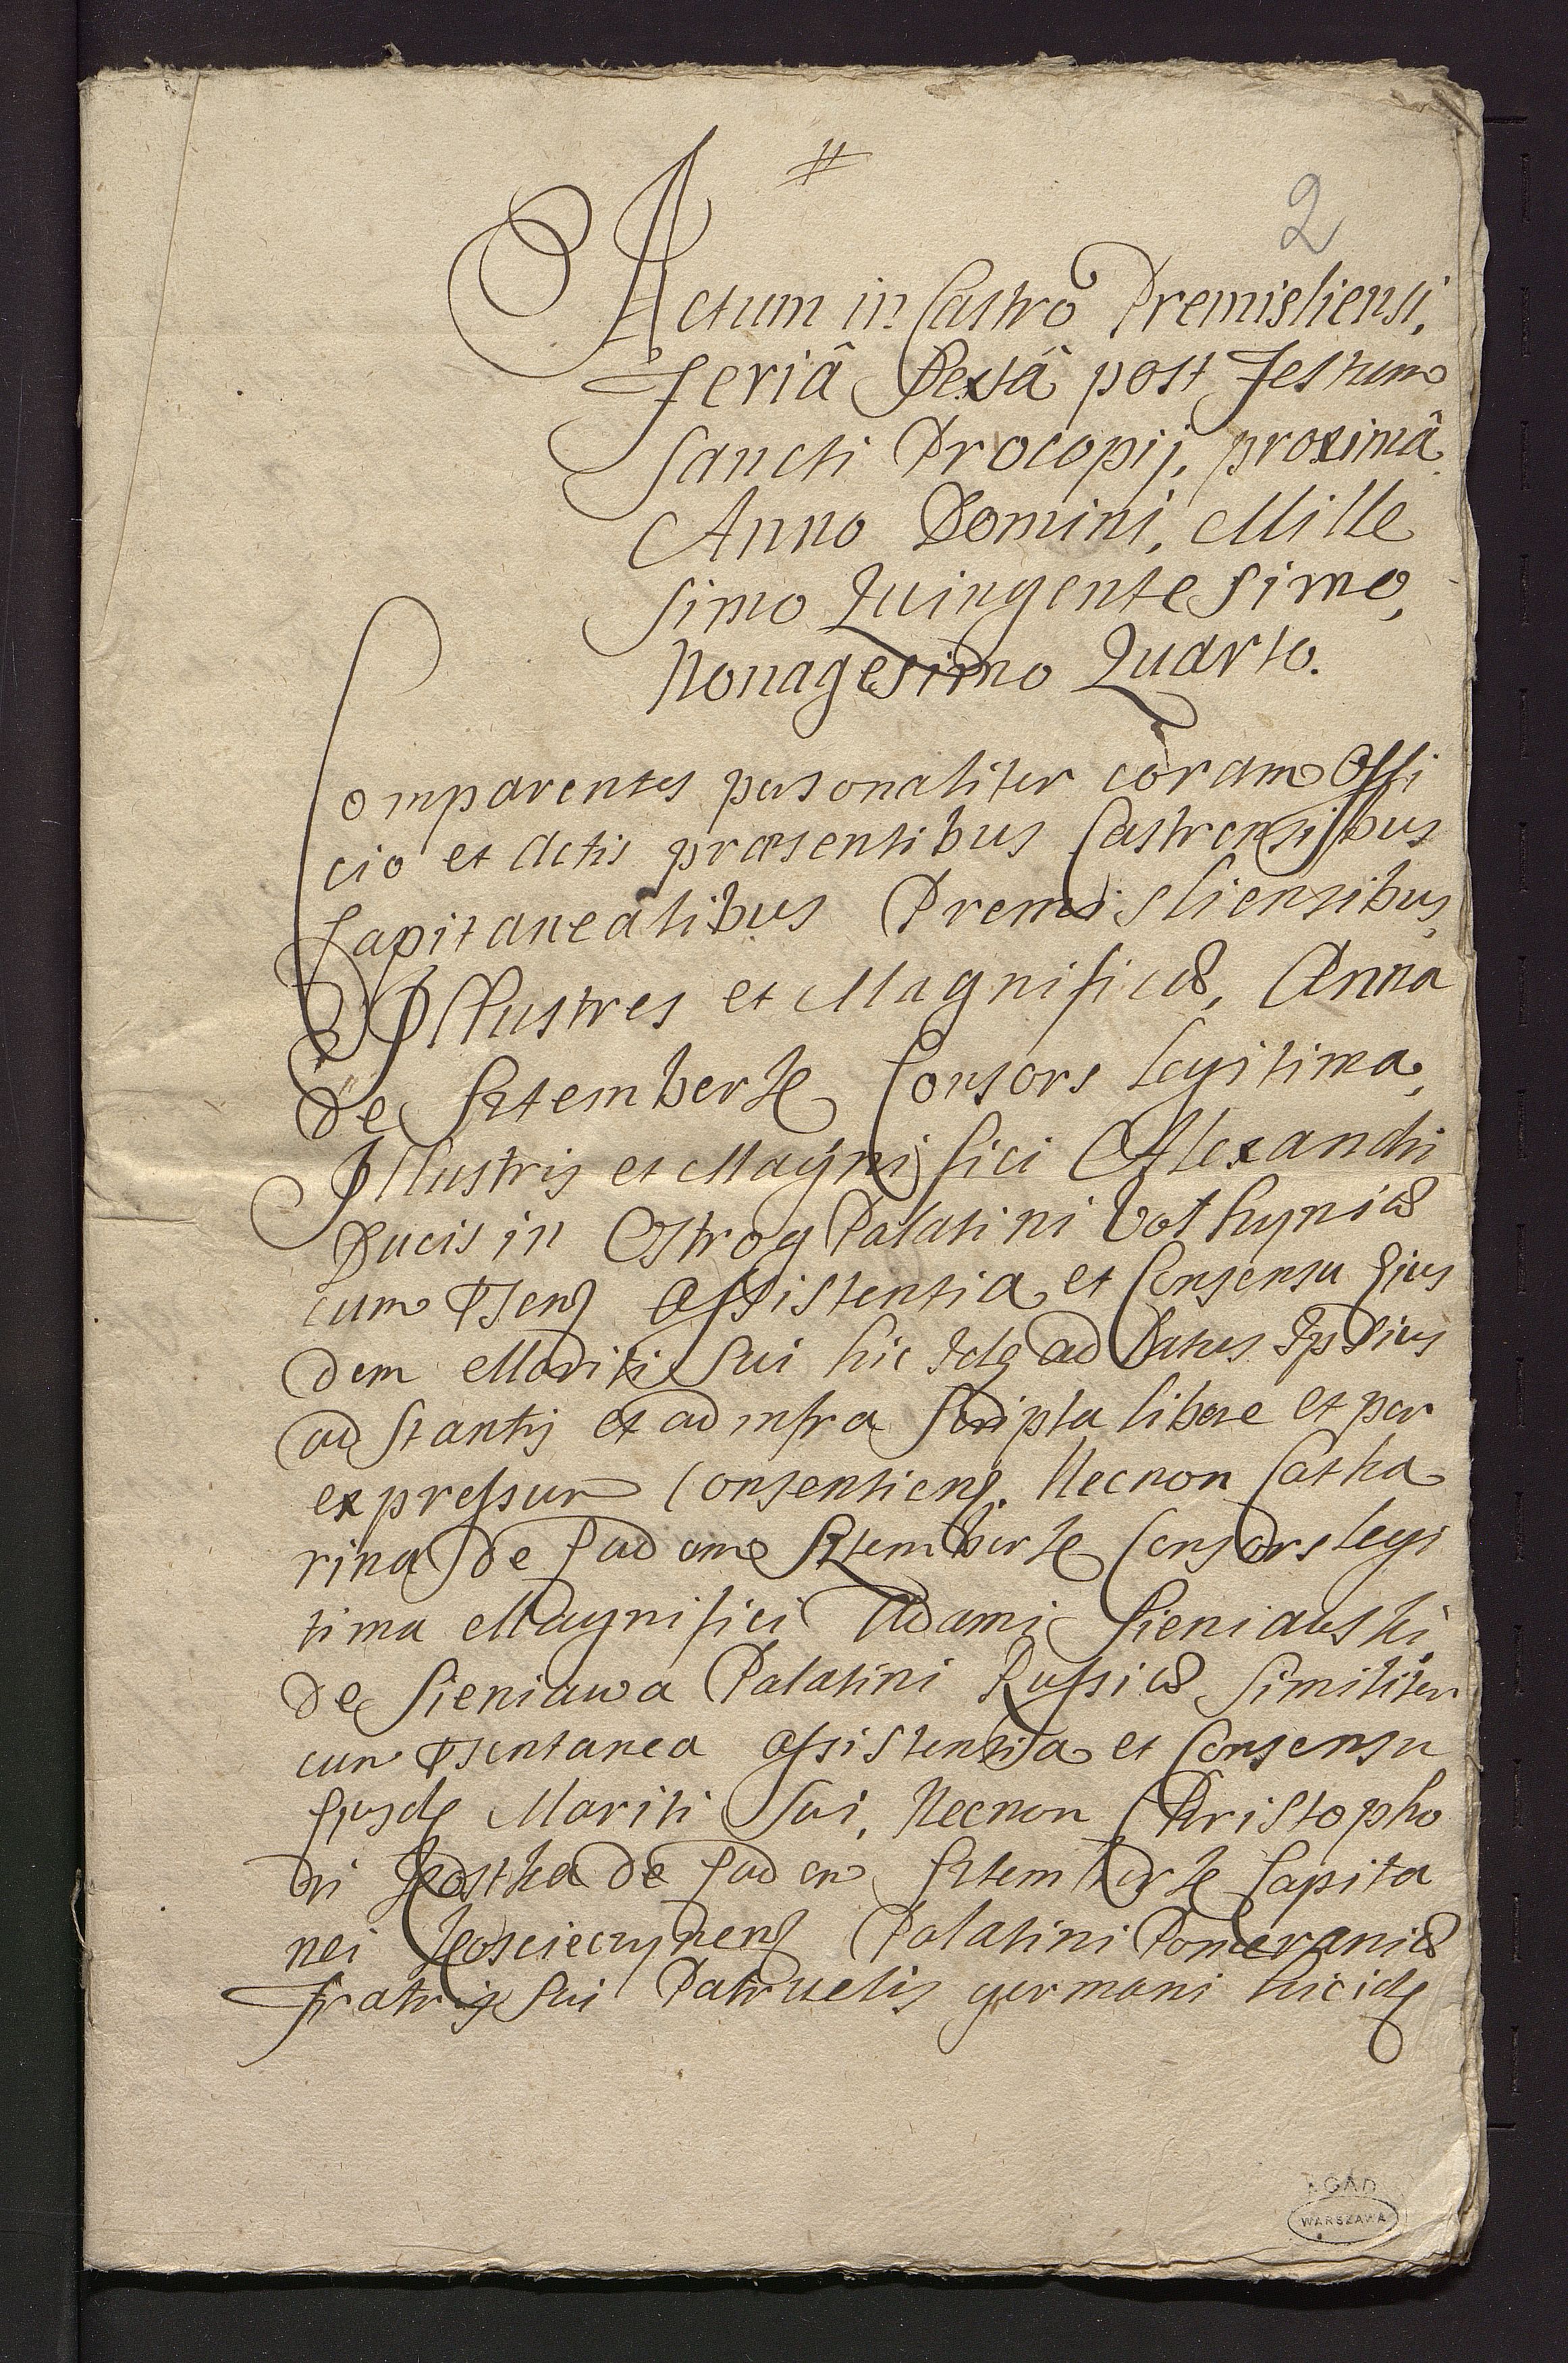 #
2
Actum in Castro Premisliensi,
Feriâ Sextâ post Festum
Sancti Procopij, proximâ
Anno Domini, Mille
simo Quingentesimo,
Nonagesimo Quarto.
Comparentes personaliter coram Offi
cio et Actis præsentibus Castrensibus
Capitanealibus Premisliensibus,
Illustres et Magnificæ, Anna
de Sztemberk Consors legitima,
Illustris et Magnifici Alexandri
Ducis in Ostrog Palatini Volhyniæ
cum assistentia et Consensu Eius
dem Mariti sui hic ad latus Ipsius
adstantis et ad infra scripta libere et per
expressum Consentiens. Necnon Catha
rina de Eadem Sztemberk Consors legi
tima Magnifici Adami Sieniawski
de Sieniawa Palatini Russiæ similiter
cum assistentia et Consensu
Ejusde Mariti Sui, Necnon Christopho
ri Kostka de Eadem Sztemberk Capita
nei Koscieczynens Palatini Pomeraniæ
Fratris sui Patruelis germani hic ide
AGAD
WARSZAWA